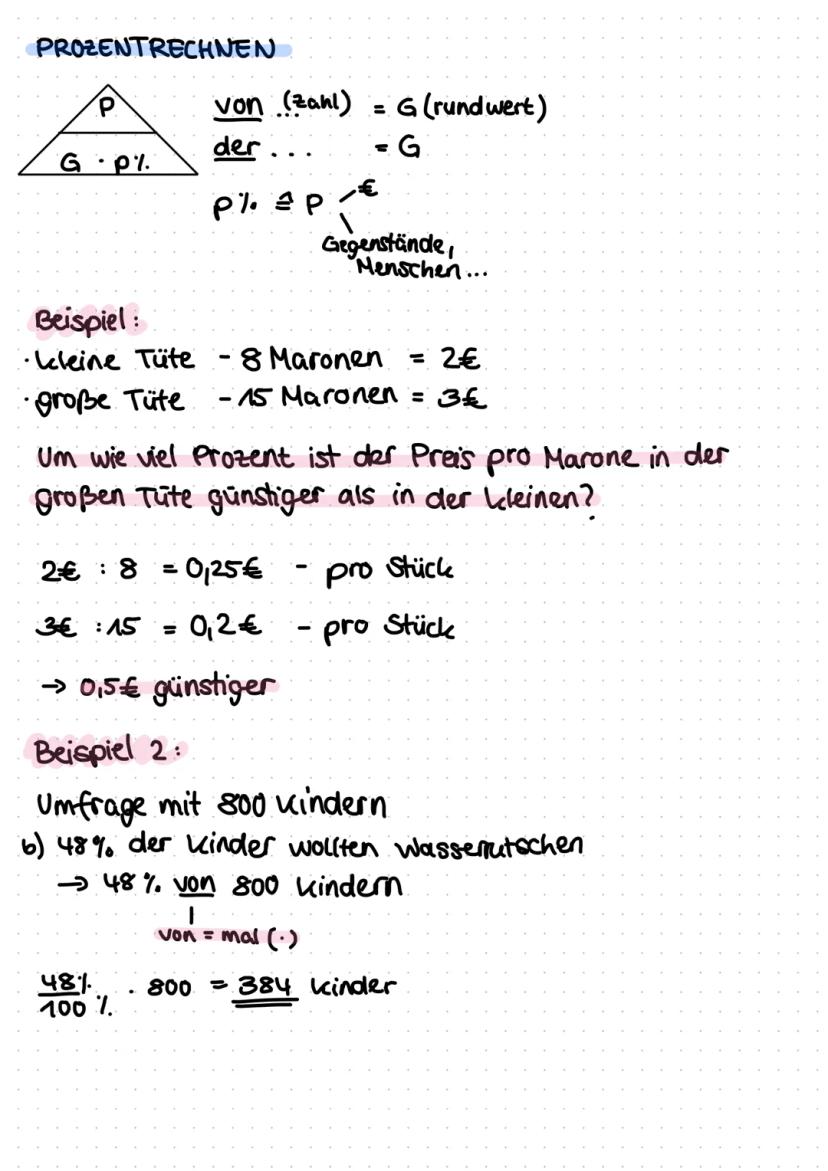 PROZENTRECHNEN
P
G · p%
von ...(zahl) = G(rundwert)
der ... = G
p% ≙ P
€
Gegenstände,
Menschen...
Beispiel:
· kleine Tüte - 8 Maronen = 2€
· große Tüte - 15 Maronen = 3€
Um wie viel Prozent ist der Preis pro Marone in der
großen Tüte günstiger als in der kleinen?
2€ : 8 = 0,25€ - pro Stück
3€ : 15 = 0,2€ - pro Stück
→ 0,5€ günstiger
Beispiel 2:
Umfrage mit 800 Kindern
b) 48% der Kinder wollten Wasserrutschen
→ 48% von 800 Kindern
von = mal (·)
48%/100% · 800 = 384 Kinder